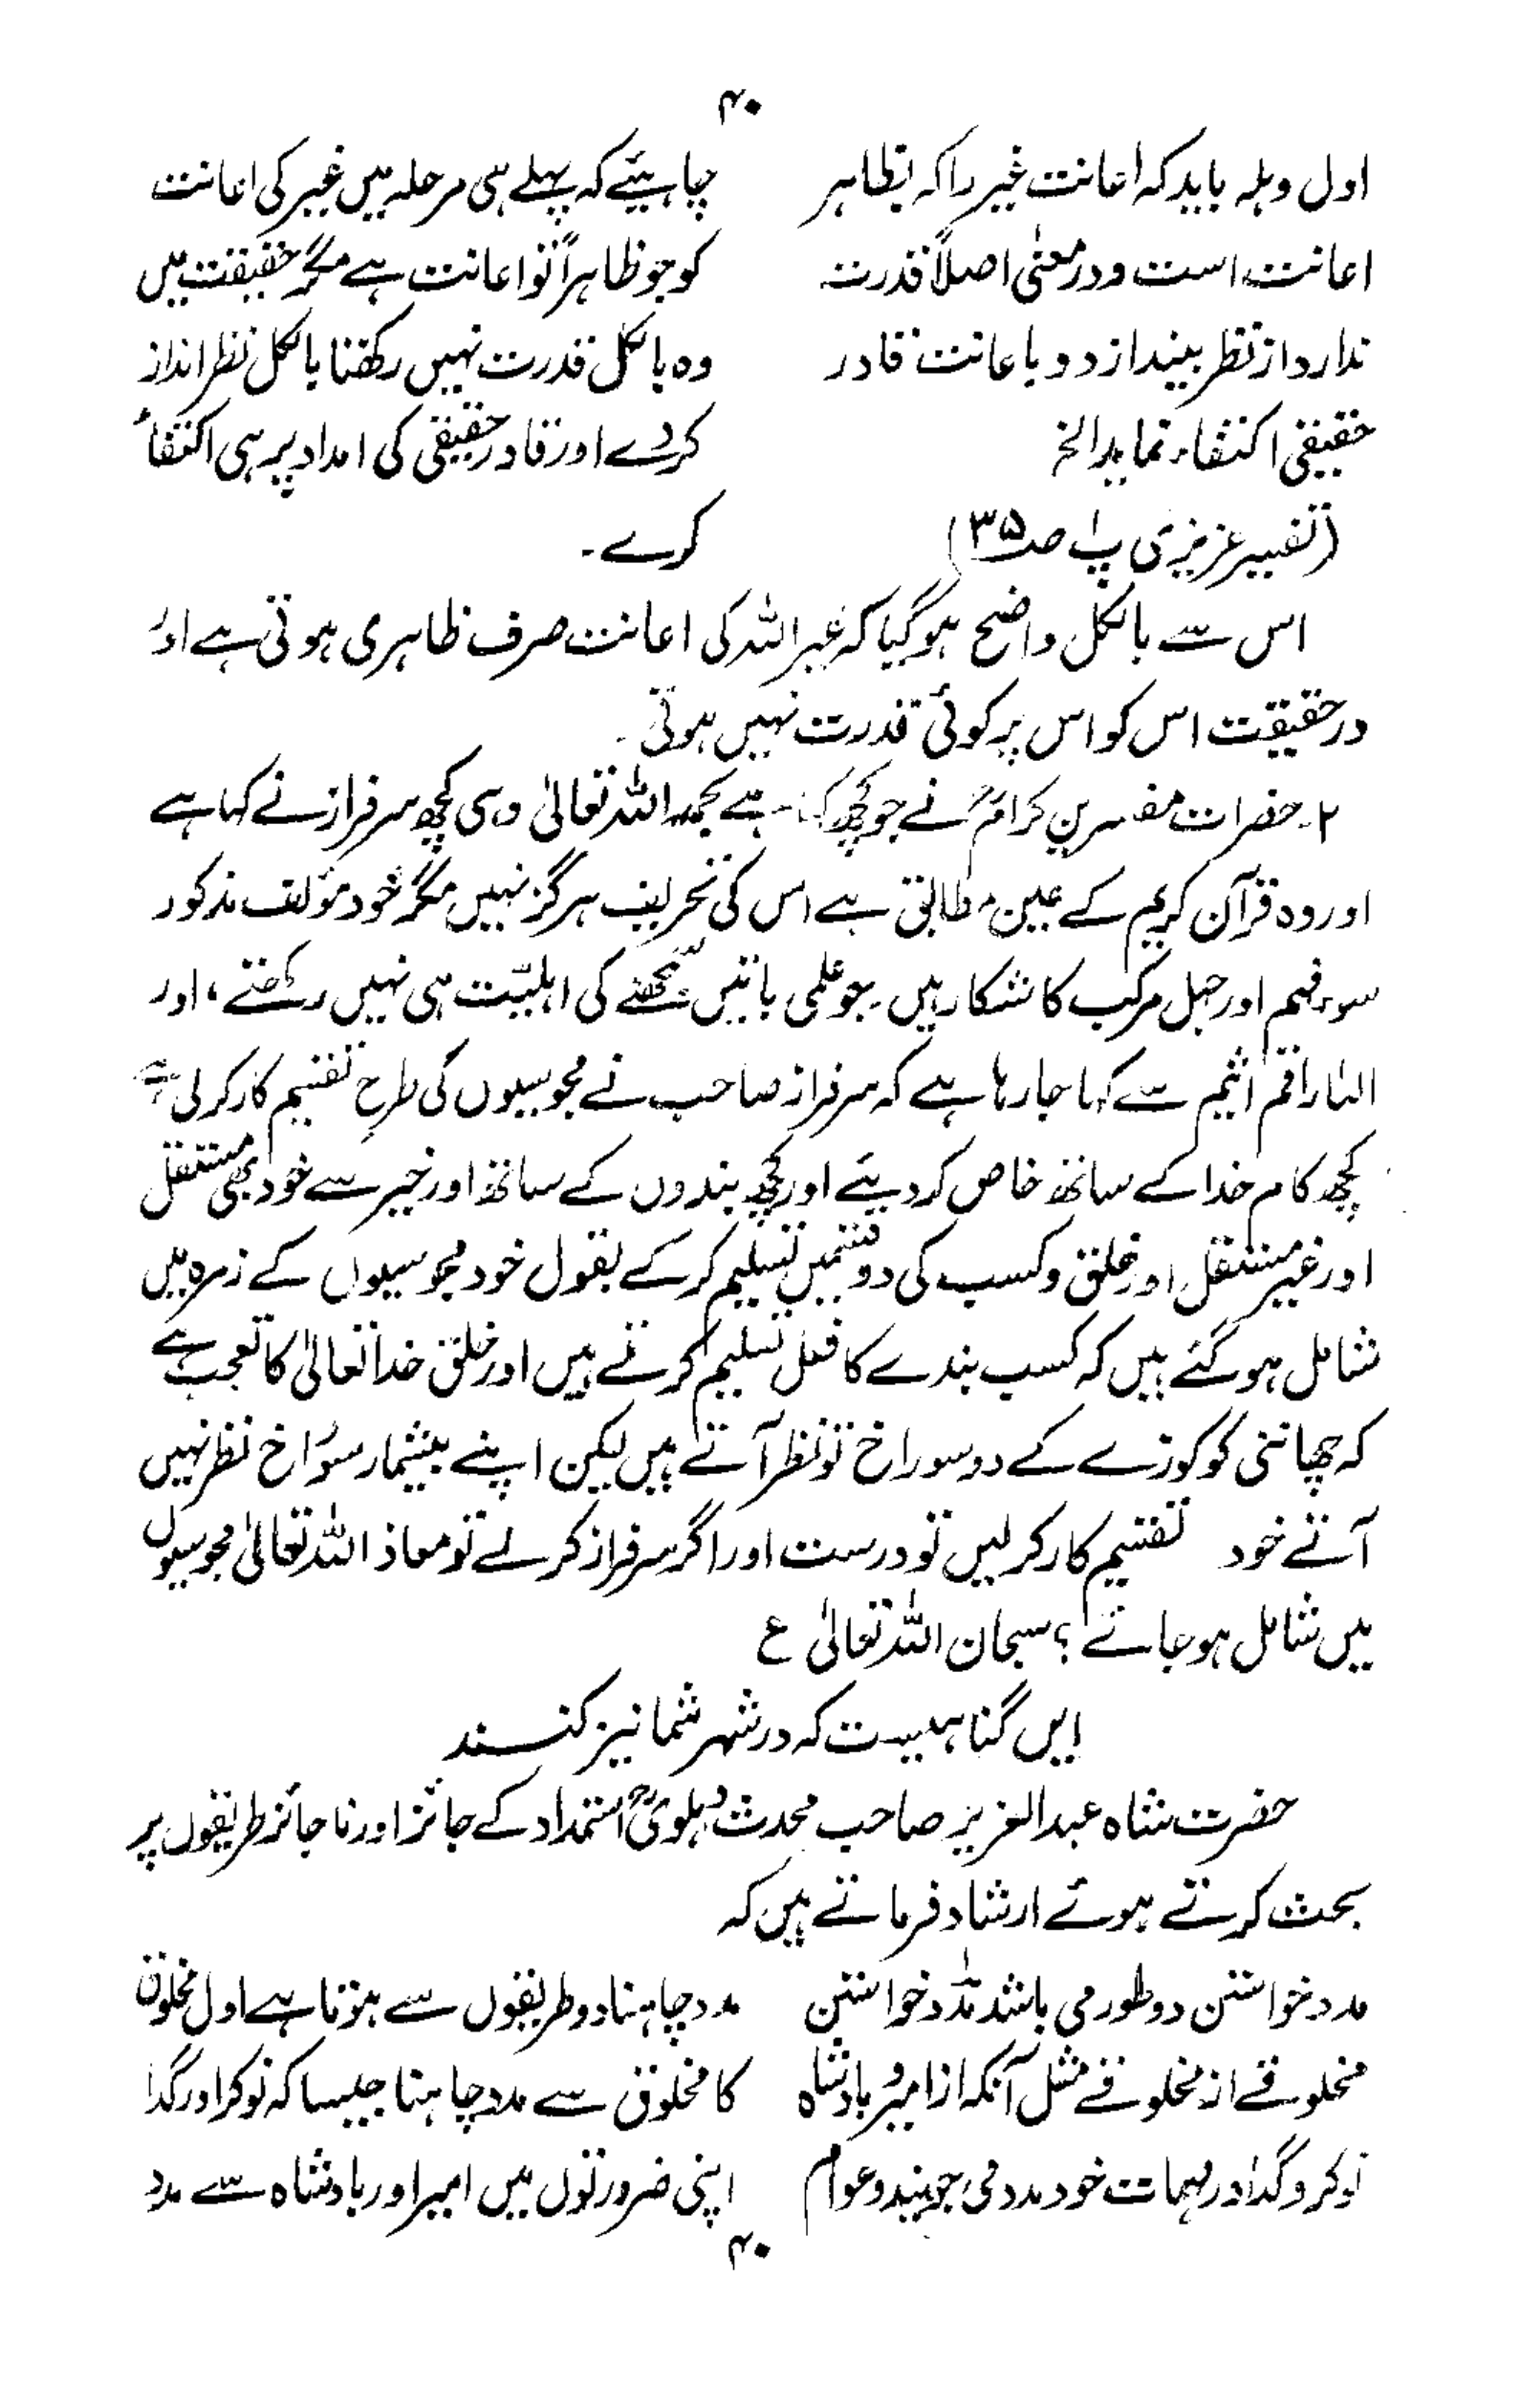 ۴۰
اول وہلہ باید کہ اعانت غیر را کہ بظاہر
اعانت است و در معنیٰ اصلاً قدرت
ندارد از نظر بیندازد و باعانت قادر
حقیقی اکتفاء نماید الخ
(تفسیر عزیزی پ۱ صـ۳۵)
چاہیئے کہ پہلے ہی مرحلہ میں غیر کی اعانت
کو جو ظاہراً تو اعانت ہے مگر حقیقت میں
وہ بالکل قدرت نہیں رکھتا بالکل نظر انداز
کر دے اور قادر حقیقی کی امداد پر ہی اکتفاء
کرے۔
اس سے بالکل واضح ہوگیا کہ غیر اللہ کی اعانت صرف ظاہری ہوتی ہے اور
درحقیقت اس کو اس پر کوئی قدرت نہیں ہوتی۔
۲۔ حضرات مفسرین کرامؒ نے جو کچھ کہا ہے بحمد اللہ تعالیٰ وہی کچھ سرفراز نے کہا ہے
اور وہ قرآن کریم کے عین مطابق ہے اس کی تحریف ہرگز نہیں مگر خود مؤلف مذکور
سوء فہم اور جہل مرکب کا شکار ہیں۔ جو علمی باتیں سمجھنے کی اہلیّت ہی نہیں رکھتے، اور
الٹا راقم اثیم سے کہا جا رہا ہے کہ سرفراز صاحب نے مجوسیوں کی طرح تقسیم کار کر لی ہے
کچھ کام خدا کے ساتھ خاص کر دیئے اور کچھ بندوں کے ساتھ اور خیر سے خود بھی مستقل
اور غیر مستقل اور خلق و کسب کی دو قسمیں تسلیم کر کے بقول خود مجوسیوں کے زمرہ میں
شامل ہو گئے ہیں کہ کسب بندے کا فعل تسلیم کرتے ہیں اور خلق خدا تعالیٰ کا تعجب ہے
کہ چھاننی کو کوزے کے دو سوراخ تو نظر آتے ہیں لیکن اپنے بیشمار سوراخ نظر نہیں
آتے خود تقسیم کار کر لیں تو درست اور اگر سرفراز کرلے تو معاذ اللہ تعالیٰ مجوسیوں
میں شامل ہو جائے؟ سبحان اللہ تعالیٰ ع
ایں گناہیست کہ در شہر شما نیز کنند
حضرت شاہ عبدالعزیز صاحب محدث دہلویؒ استمداد کے جائز اور ناجائز طریقوں پر
بحث کرتے ہوئے ارشاد فرماتے ہیں کہ
مدد خواستن دو طور می باشد مدد خواستن
مخلوقے از مخلوقے مثل آنکہ از امیر و بادشاہ
نوکر و گدا در مہمات خود مدد می جویند و عوام
مدد چاہنا دو طریقوں سے ہوتا ہے اول مخلوق
کا مخلوق سے مدد چاہنا جیسا کہ نوکر اور گدا
اپنی ضرورتوں میں امیر اور بادشاہ سے مدد
۴۰